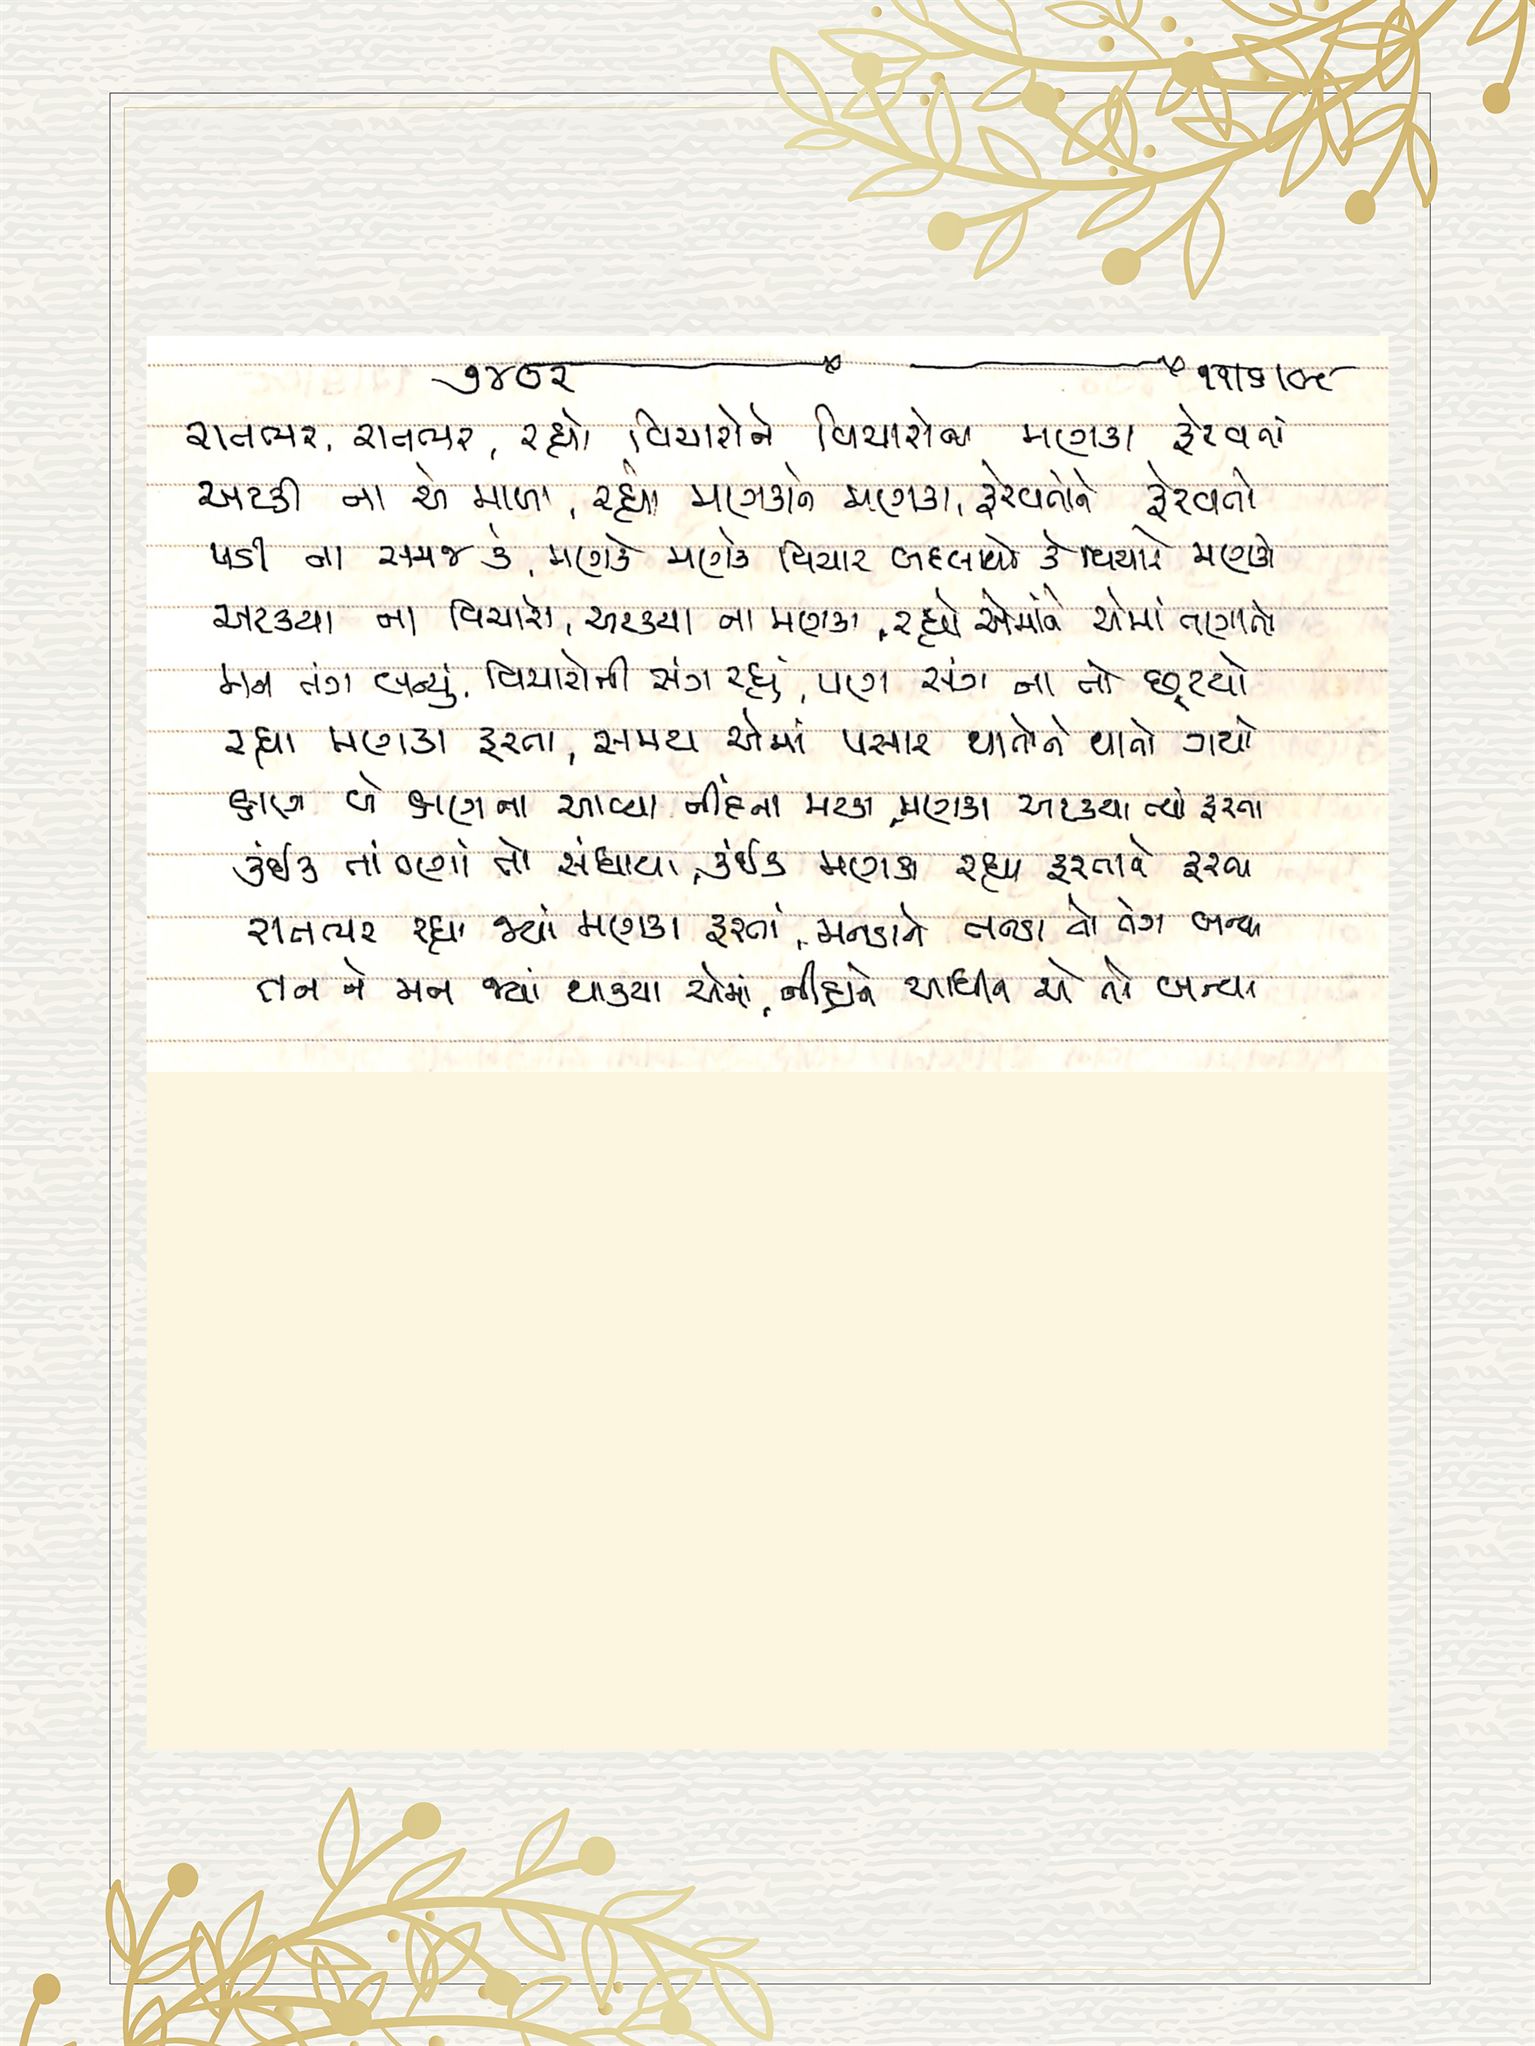 ૭૪૦૨ ૧૧/૬/૦૮
રાતભર, રાતભર, રહ્યો વિચારોને વિચારોના મણકા ફેરવતાં
અટકી ના એ માળા, રહ્યો મણકાને મણકા, ફેરવતોને ફેરવતો
પડી ના સમજ કે, મણકે મણકે વિચાર બદલાયો કે વિચારે મણકો
અટક્યા ના વિચારો, અટક્યા ના મણકા, રહ્યો એમાંને એમાં તણાતો
મન તંગ બન્યું, વિચારોની સંગ રહ્યું, પણ સંગ ના તો છૂટયો
રહ્યા મણકા ફરતા, સમય એમાં પસાર થાતોને થાતો ગયો
ક્ષણ બે ક્ષણના આવ્યા નીંદના મટકા, મણકા અટક્યા ત્યાં ફરતા
કંઈક તાંતણાં તો સંધાયા, કંઈક મણકા રહ્યા ફરતાને ફરતા
રાતભર રહ્યા જ્યાં મણકા ફરતાં, મનડાને તનડા તો તંગ બન્યા
તન ને મન જ્યાં થાક્યા એમાં, નીંદ્રાને આધીન એ તો બન્યા